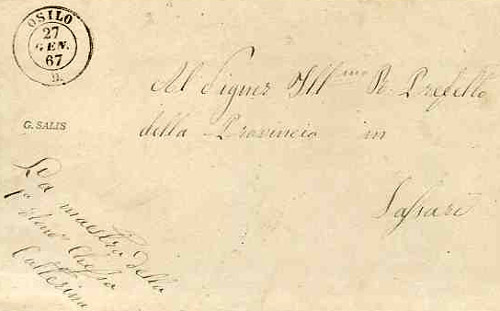 OSILO
27
GEN.
67
Al Signor Ill.mo R. Prefetto
G. SALIS
della Provincia in
Sassari
La maestra della
Chessa
Catterina